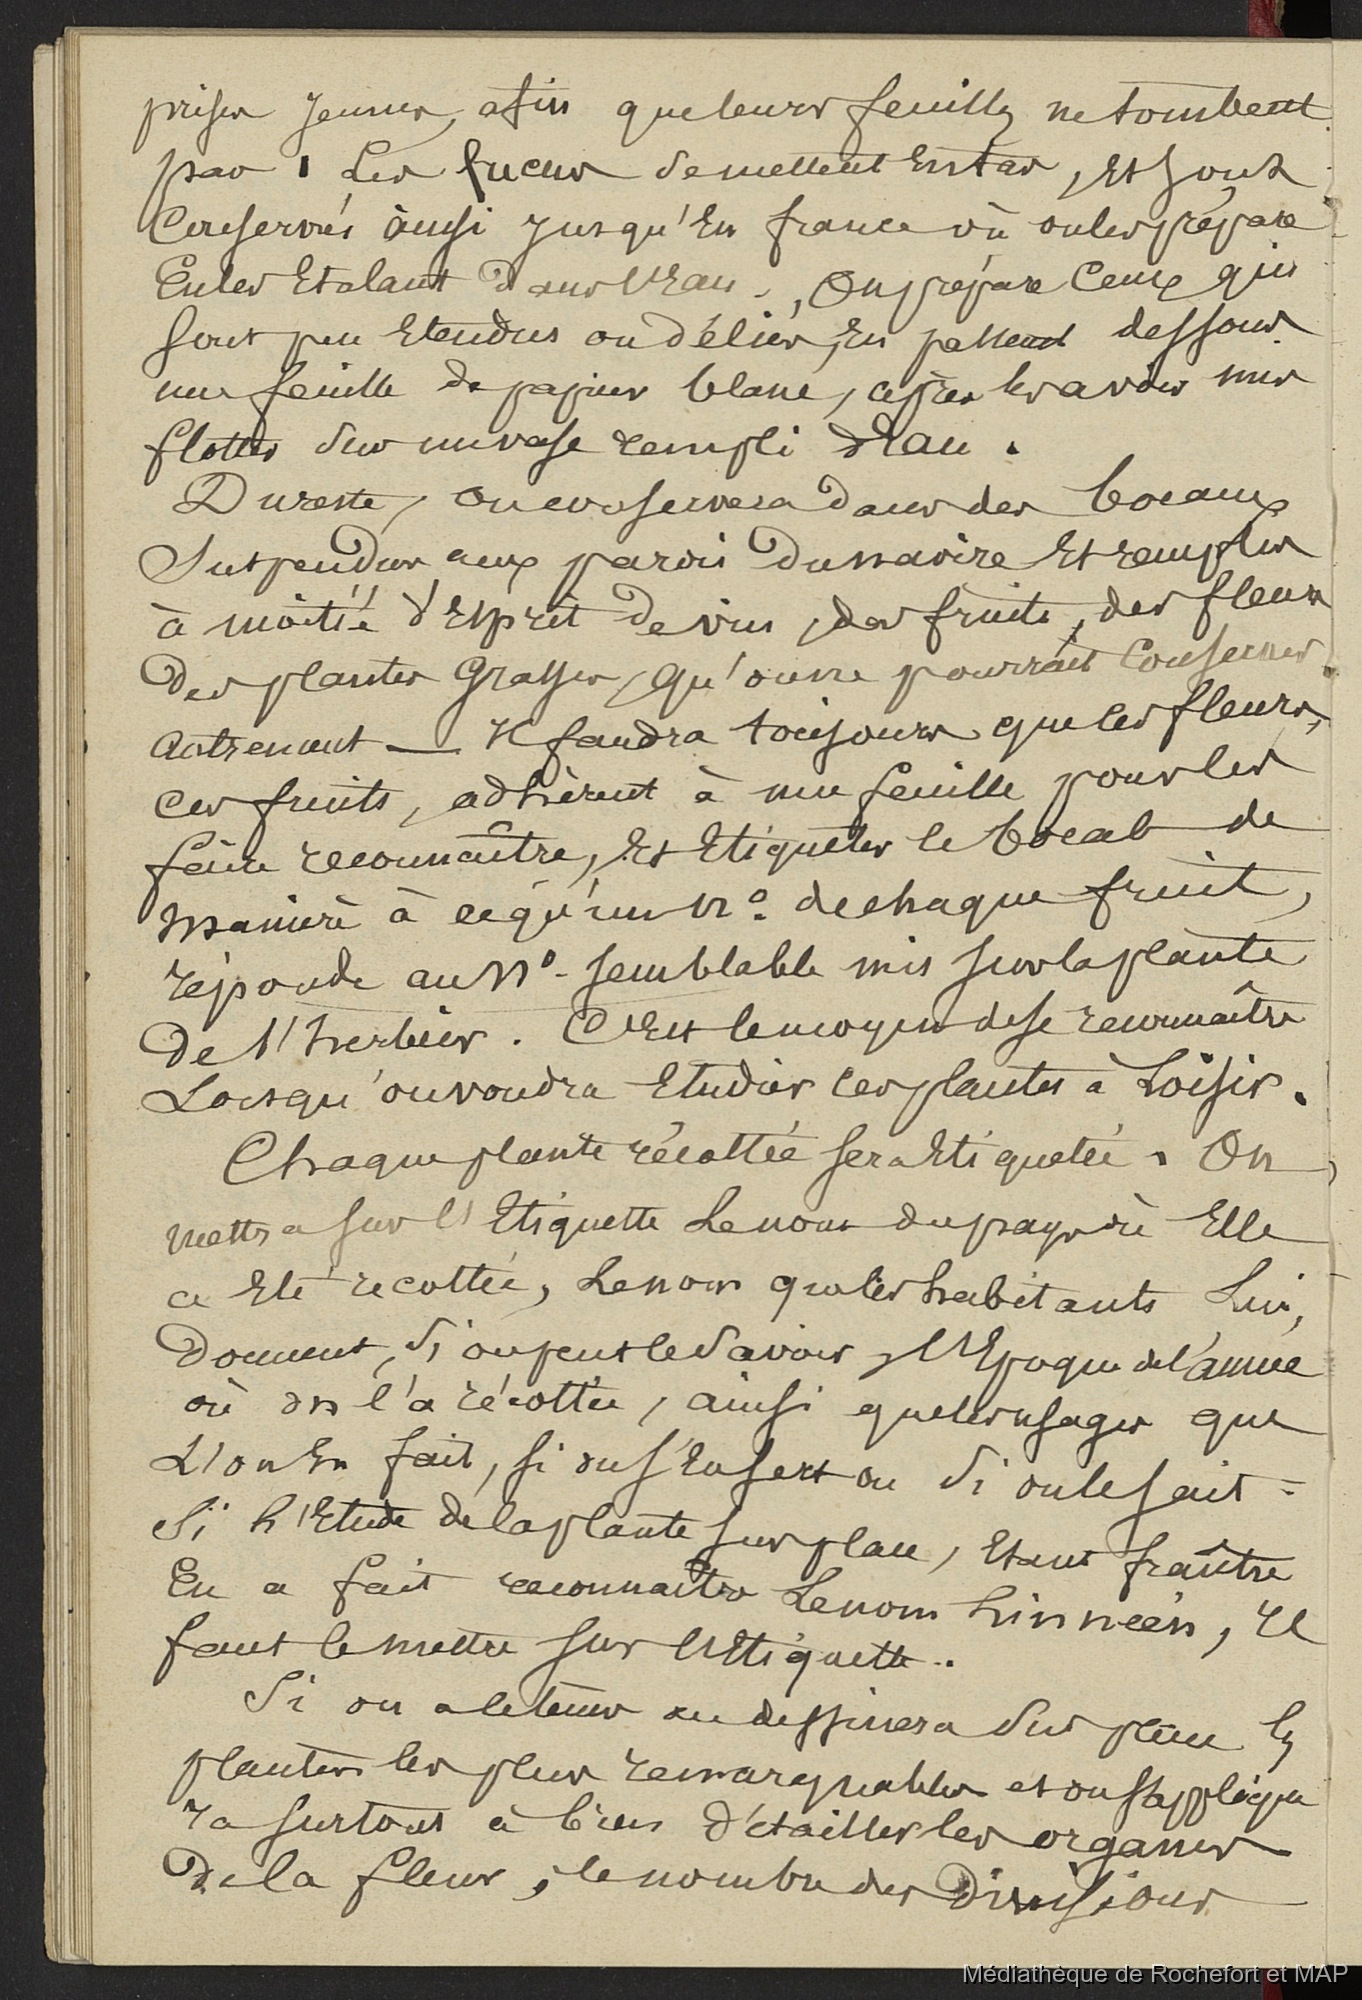 prises jeunes, afin que leurs feuilles ne tombent
pas. Les fucus se mettent en tas, et sont
Conservés ainsi jusqu'en france où on les prépare
En les Etalant dans l'Eau. On prépare Ceux qui
sont peu Etendus ou déliés, en passant dessous
une feuille de papier blanc, après les avoir mis
flotter sur un vase rempli d'Eau.
Du reste, on conservera dans des bocaux
Suspendus aux parois du navire Et remplis
à moitié d'Esprit de vin, des fruits, des fleurs
des plantes Grasses, qu'on ne pourrait Conserver
autrement — Il faudra toujours que les fleurs,
ces fruits, adhèrent à une feuille pour les
faire reconnaître, Et Etiqueter le bocal de
manière à ce qu'un No. de chaque fruit,
réponde au No. semblable mis sur la plante
de l'herbier. C'Est le moyen de se reconnaître
Lorsqu'on voudra Etudier ces plantes à Loisir.
Chaque plante récoltée sera Etiquetée. On
mettra sur l'Etiquette Le nom du pays où Elle
a Eté recoltée, Le nom que les habitants Lui,
Donnent, si on peut le savoir, l'Epoque de l'année
où on l'a récoltée, ainsi que les usages que
L'on En fait, si on s'En sert ou si on le sait =
Si l'Etude de la plante sur place, Etant fraîche
En a fait reconnaître Le nom Linnéen, Il
faut le mettre sur l'Etiquette.
Si on a le tems on dessinera sur place les
plantes les plus remarquables et on s'applique
ra surtout à bien détailler les organes
De la fleur, le nombre des Divisions
Médiathèque de Rochefort et MAP